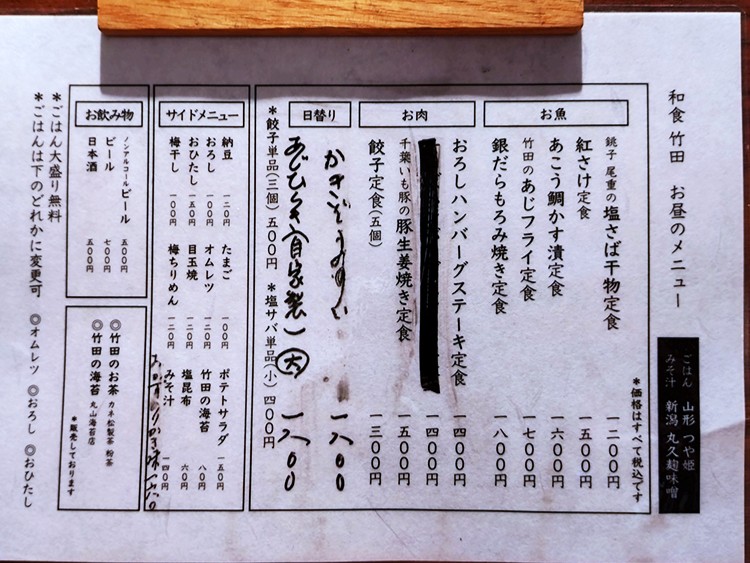 和食 竹田 お昼のメニュー
ごはん 山形 つや姫
みそ汁 新潟 丸久麹味噌
*価格はすべて税込です
お魚
銚子 尾重の 塩さば干物定食 一二〇〇円
紅さけ定食 一五〇〇円
あこう鯛かす漬定食 一六〇〇円
竹田の あじフライ定食 一七〇〇円
銀だらもろみ焼き定食 一八〇〇円
お肉
おろしハンバーグステーキ定食 一四〇〇円
一四〇〇円
千葉いも豚の 豚生姜焼き定食 一五〇〇円
餃子定食(五個) 一三〇〇円
日替り
一八〇〇
あじひらき(自家製)大 一八〇〇
*餃子単品(三個)五〇〇円 *塩サバ単品(小)四〇〇円
サイドメニュー
納豆 一二〇円 たまご 一〇〇円 ポテトサラダ 一五〇円
おろし 一〇〇円 オムレツ 一二〇円 竹田の海苔 八〇円
おひたし 一五〇円 目玉焼 一二〇円 塩昆布 六〇円
梅干し 一〇〇円 梅ちりめん 一二〇円 みそ汁 一四〇円
お飲み物
ノンアルコールビール 五〇〇円
ビール 七〇〇円
日本酒 五〇〇円
◎竹田のお茶 カネ松製茶 粉茶
◎竹田の海苔 丸山海苔店
*販売しております
*ごはん大盛り無料
*ごはんは下のどれかに変更可 ◎オムレツ ◎おろし ◎おひたし